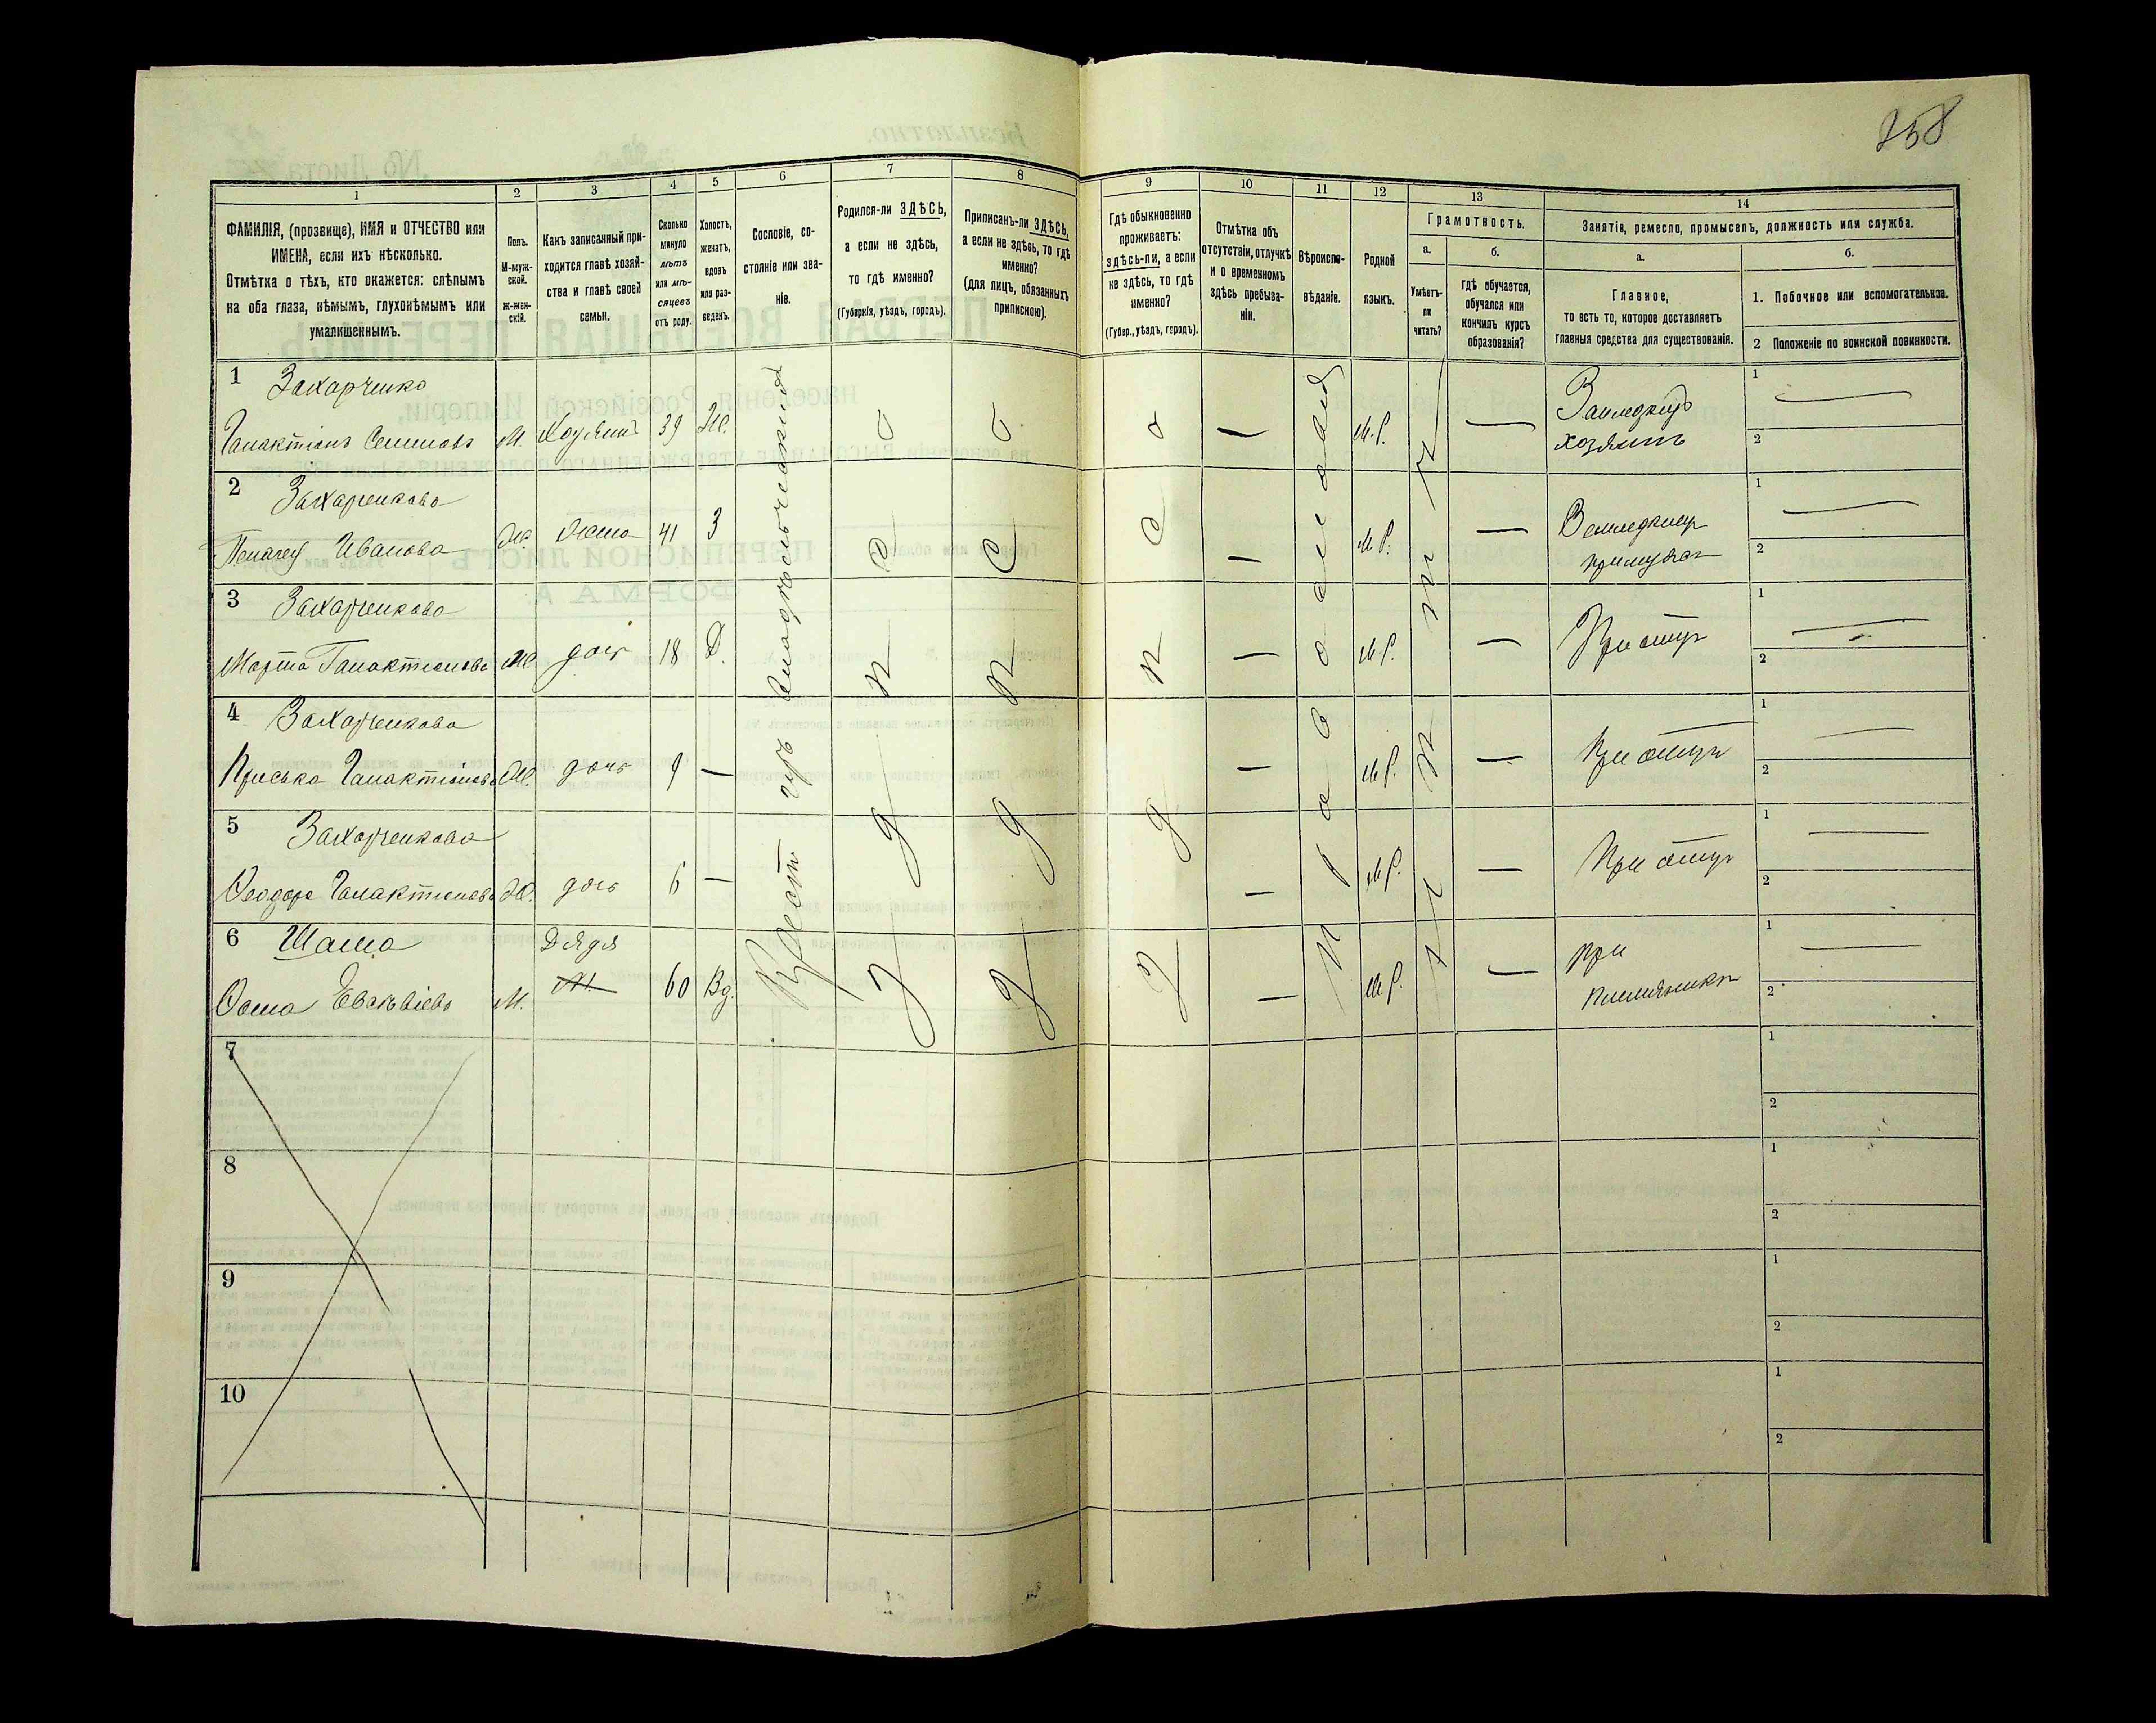 258
1
2
3
4
5
6
7
8
9
10
11
12
13
14
ФАМИЛІЯ, (прозвище), ИМЯ и ОТЧЕСТВО или
ИМЕНА, если ихъ нѣсколько.
Отмѣтка о тѣхъ, кто окажется: слѣпымъ
на оба глаза, нѣмымъ, глухонѣмымъ или
умалишеннымъ.
Полъ.
М-муж-
ской.
ж-жен-
скій.
Какъ записанный при-
ходится главѣ хозяй-
ства и главѣ своей
семьи.
Сколько
минуло
лѣтъ
или мѣ-
сяцевъ
отъ роду.
Холостъ,
женатъ,
вдовъ
или раз-
веденъ.
Сословіе, со-
стояніе или зва-
ніе.
Родился-ли ЗДѢСЬ,
а если не здѣсь,
то гдѣ именно?
(Губернія, уѣздъ, городъ).
Приписанъ-ли ЗДѢСЬ,
а если не здѣсь, то гдѣ
именно?
(для лицъ, обязанныхъ
припискою).
Гдѣ обыкновенно
проживаетъ:
здѣсь-ли, а если
не здѣсь, то гдѣ
именно?
(Губер., уѣздъ, городъ).
Отмѣтка объ
отсутствіи, отлучкѣ
и о временномъ
здѣсь пребыва-
ніи.
Вѣроиспо-
вѣданіе.
Родной
языкъ.
Грамотность.
а.
Умѣетъ-
ли
читать?
б.
гдѣ обучается,
обучался или
кончилъ курсъ
образованія?
Занятія, ремесло, промыселъ, должность или служба.
а.
Главное,
то есть то, которое доставляетъ
главныя средства для существованія.
б.
1. Побочное или вспомогательное.
2 Положеніе по воинской повинности.
1 Захарченко
Галактіонъ Семеновъ М. Хозяинъ 39 Ж. — М.Р. — Земледѣлецъ
хозяинъ
1 —
2
2 Захарченкова
Пелагея Иванова Ж жена 41 З — М.Р. —
1 —
2
3 Захарченкова
Марта Галактионова Ж дочь 18 Д. — М.Р. — При отцѣ
1 —
2
4 Захарченкова
Приська Галактіонова Ж. дочь 9 — — М.Р. — При отцѣ
1 —
2
5 Захарченкова
Ѳеодора Галактионова Ж. дочь 6 — — М.Р. — При отцѣ
1 —
2
6 Дядя
М. 60 Вд. — М.Р. — При
племянникѣ
1 —
2
Крест.
здѣсь
здѣсь
здѣсь
Православная
нѣтъ
7
1
2
8
1
2
9
1
2
10
1
2